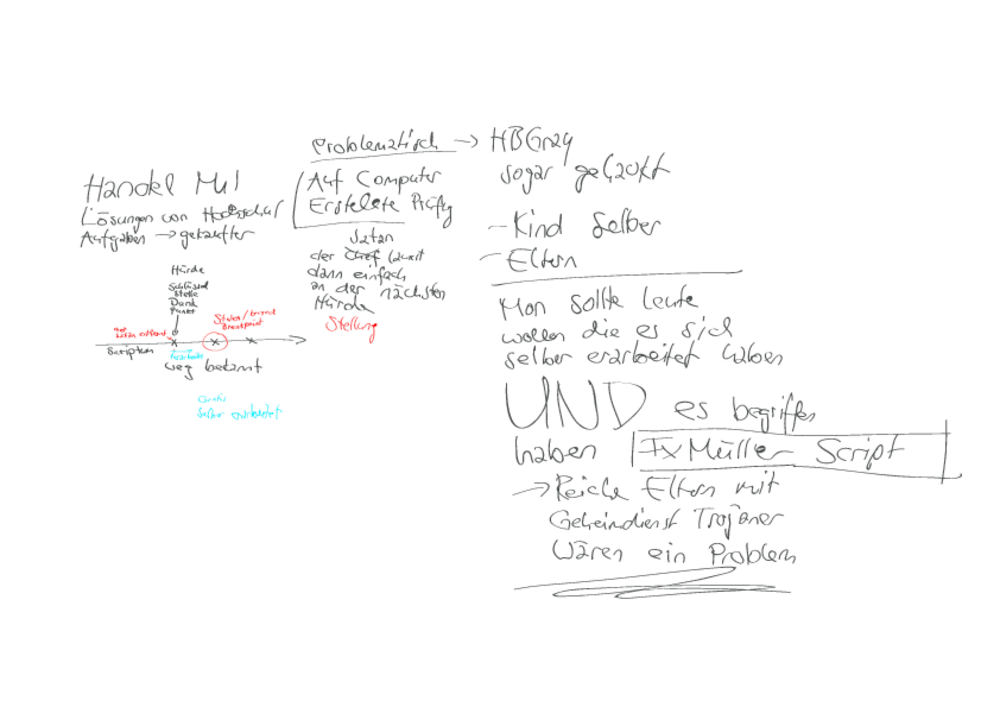 Handel Mit
Lösungen von Hochschul
Aufgaben → gekaufter
Hürde
Schlüssel
Stelle
Dank
Punkt
Status / trusted
Breakpoint
Scriptum
weg bekannt
Grafik
Selber erarbeitet
Problematisch → HBGray
sogar gehackt
Auf Computer
Erstellete Prüfg
Satan
der Chef lauert
dann einfach
an der nächsten
Hürde
Stellung
- Kind Selber
- Eltern
Man sollte Leute
wollen die es sich
selber erarbeitet haben
UND es begriffen
haben FX Müller Script
→ Reiche Eltern mit
Geheimdienst Trojaner
Wären ein Problem